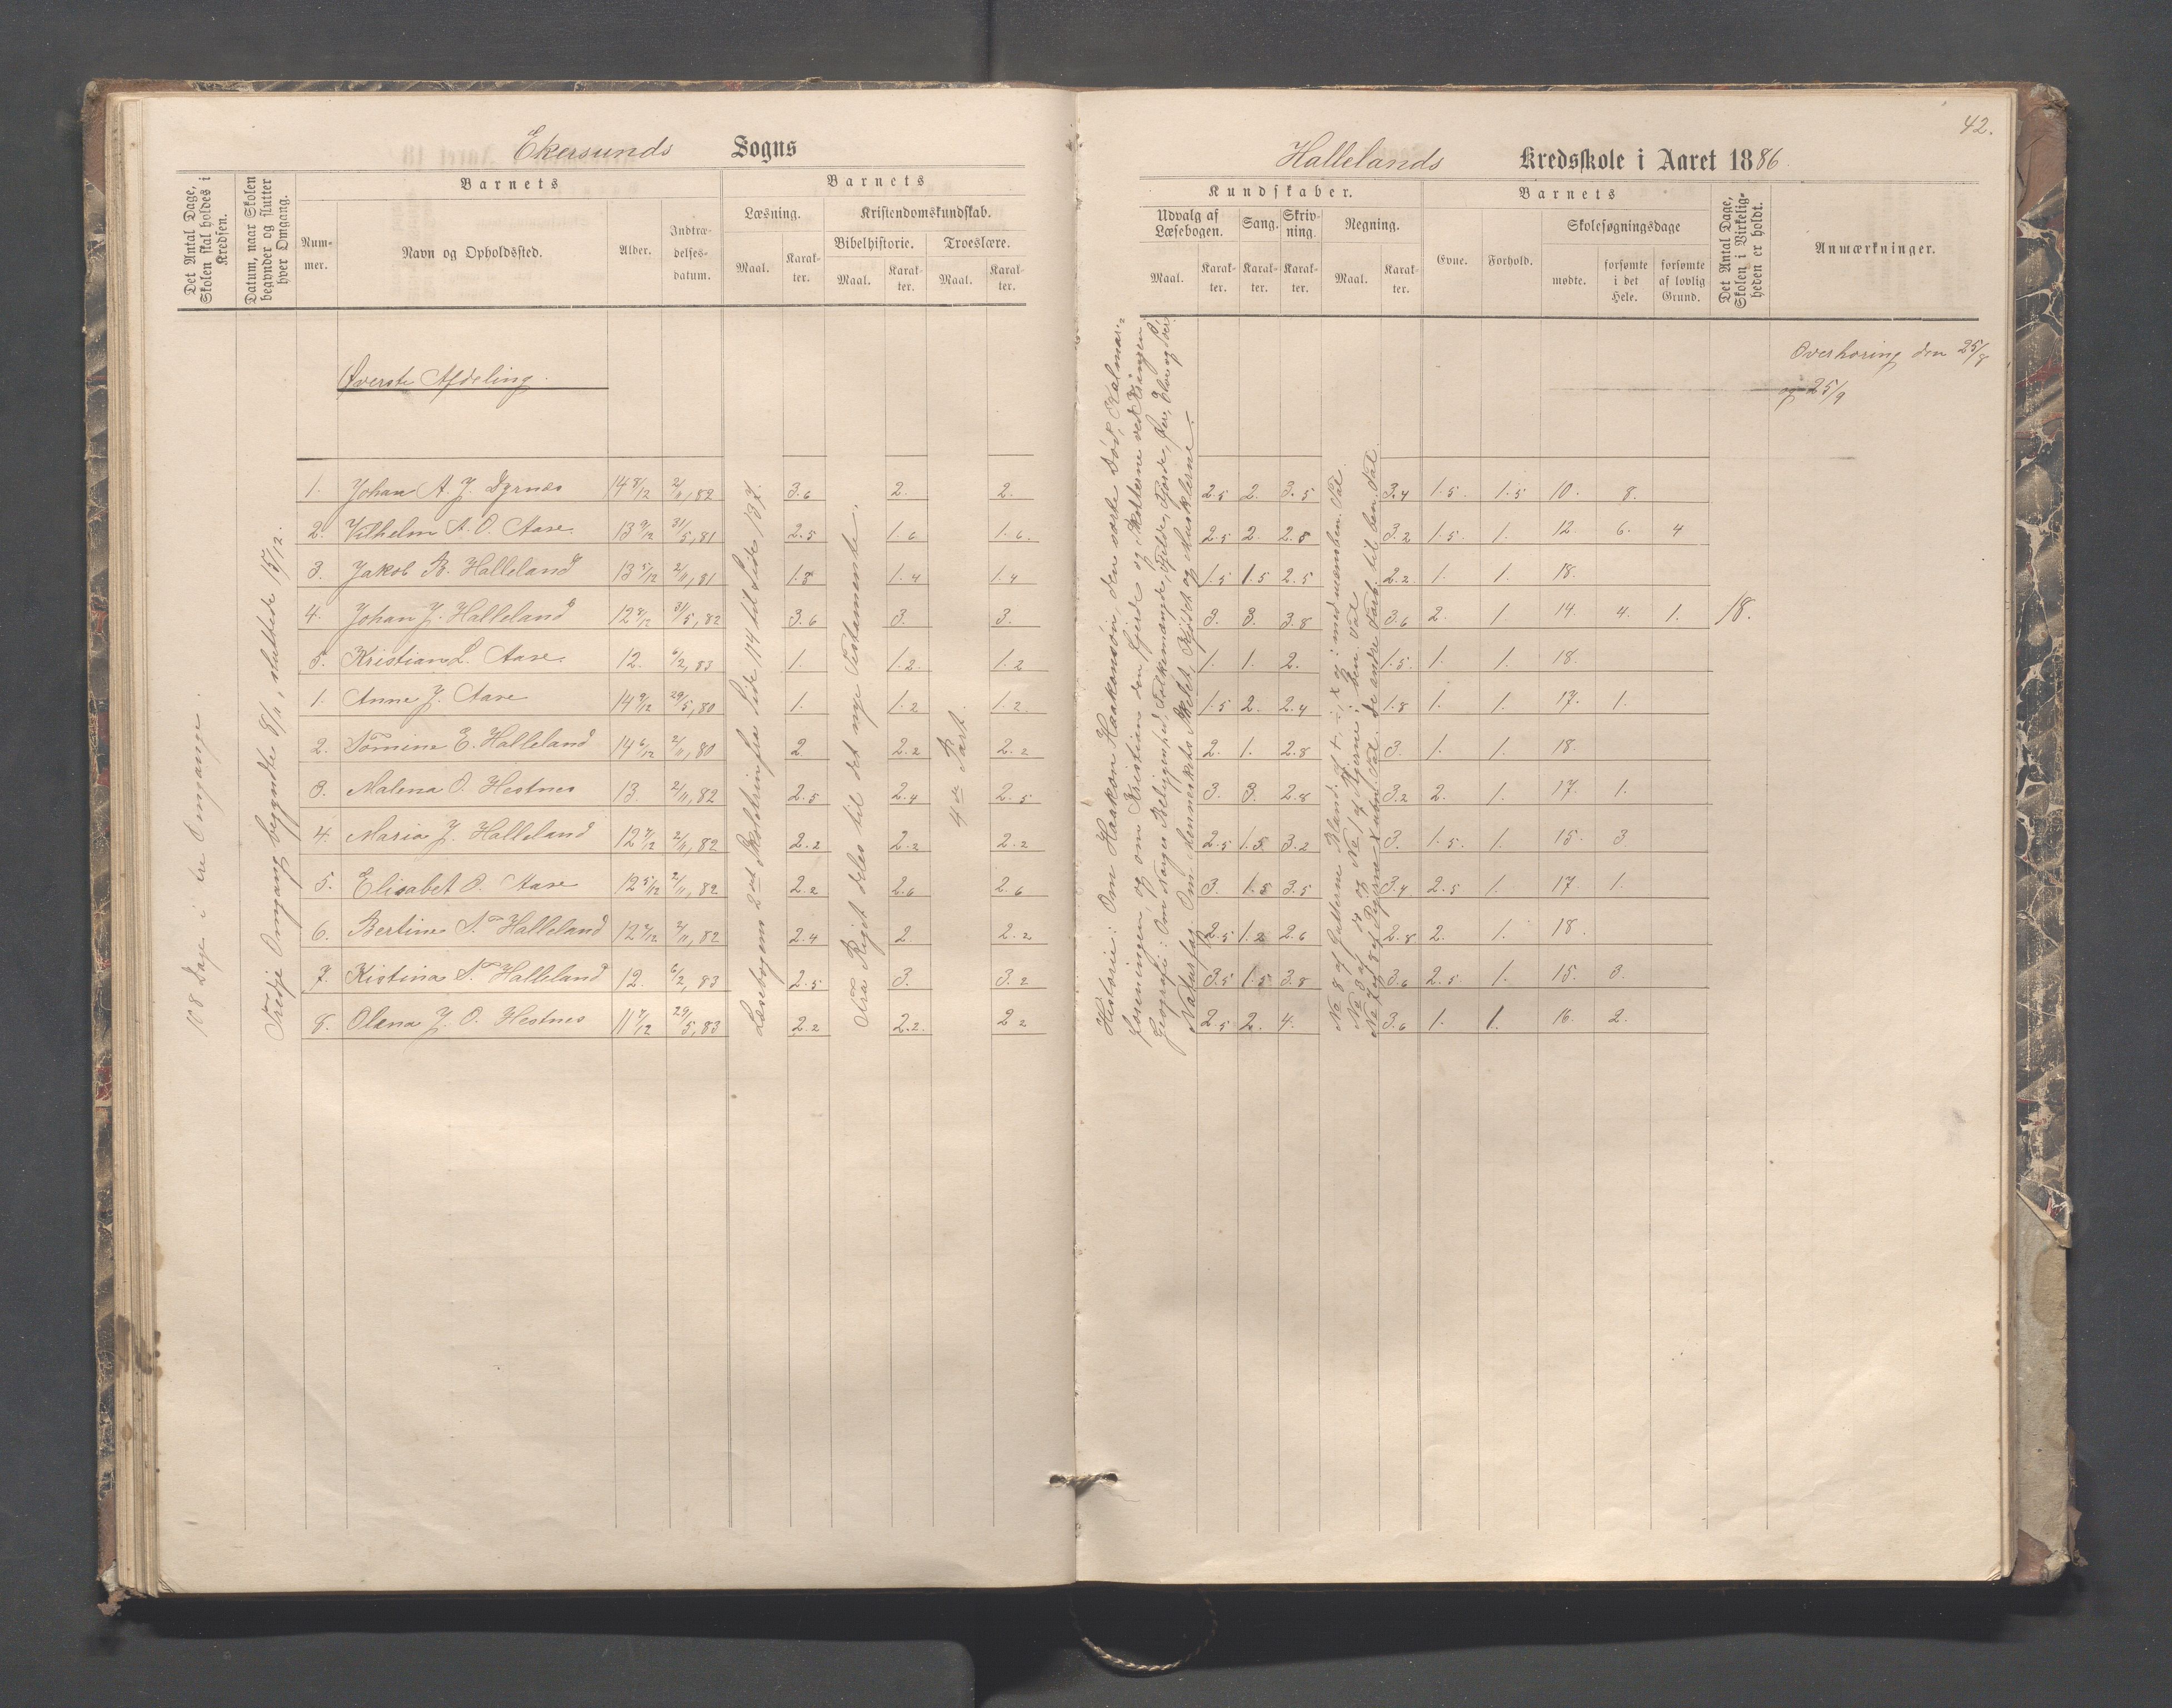 Ekersunds Sogns
Det Antal Dage, Skolen skal holdes i Kredsen.
Datum, naar Skolen begynder og slutter hver Omgang.
Barnets
Num-mer.
Navn og Opholdssted.
Alder.
Indtræ-delses-datum.
Barnets
Læsning.
Maal.
Karak-ter.
Kristendomskundskab.
Bibelhistorie.
Maal.
Karak-ter.
Troeslære.
Maal.
Karak-ter.
108 Dage i tre Omgange.
Tredje Omgang begyndte 8/11, sluttede 15/12.
Øverste Afdeling.
1. Johan A. J. Dyrnæs 14 8/12 2/11,82 3.6 2. 2.
2. Vilhelm A. O. Aase. 13 9/12 31/5,81 2.5 1.6 1.6.
3. Jakob B. Halleland 13 5/12 2/11,81 1.8 1.4 1.4
4. Johan J. Halleland 12 7/12 31/5,82 3.6 3. 3.
5. Kristian L. Aase. 12. 6/2,83 1. 1.2. 1.2
1. Anne J. Aase 14 9/12 29/5,80 1. 1.2 1.2
2. Tomine E. Halleland 14 6/12 2/11,80 2 2.2 2.2
3. Malena O. Hestnes 13 2/11,82 2.5 2.4 2.5
4. Maria J. Halleland 12 7/12 2/11,82 2.2 2.2 2.2
5. Elisabet O. Aase 12 5/12 2/11,82 2.2 2.6 2.6
6. Bertine T. Halleland 12 7/12 2/11,82 2.4 2. 2.2
7. Kistina T. Halleland 12. 6/2,83 2.5 3. 3.2
8. Olena J. O. Hestnes 11 7/12 29/5,83 2.2 2.2. 2.2
Læsebogens 2det Skoletrin fra Side 114 til Side 137.
Fra Riget deles til det nye Testamente.
4de Part.
42.
Hallelands Kredsskole i Aaret 1886.
Kundskaber.
Udvalg af Læsebogen.
Maal.
Karak-ter.
Sang.
Karak-ter.
Skriv-ning.
Karak-ter.
Regning.
Maal.
Karak-ter.
Barnets
Evne.
Forhold.
Skolesøgningsdage
mødte.
forsømte i det Hele.
forsømte af lovlig Grund.
Det Antal Dage, Skolen i Virkelig-heden er holdt.
Anmærkninger.
Overhøring den 25/8
og 25/9
Historie: Om Haakon Haakonsøn, den sorte Død, Kalmar-
foreningen, og om Kristian den fjerde og Skotterne ved Kringen.
Geografi: Om Norges Beliggenhed, Folkemængde, Fjelde, Fjorde, Øer, Elve og
Naturfag: Om Menneskets Skelet, Kjødet og Musklerne.
2.5 2. 3.5 3.4 1.5. 1.5 10. 8.
2.5 2. 2.8 3.2 1.5. 1. 12. 6. 4
1.5 1.5 2.5 2.2. 1. 1. 18.
3. 3. 3.8 3.6 2. 1. 14. 4. 1. 18.
1. 1. 2. 1.5. 1. 1. 18.
1.5 2. 2.4 1.8 1. 1. 17. 1.
2. 1. 2.8 3. 1. 1. 18.
3. 3. 2.8 3.2 2. 1. 17. 1.
2.5 1.5 3.2 3. 1.5. 1. 15. 3
3. 1.5 3.5 3.4 2.5 1. 17. 1.
2.5 1.2 2.6 2.8 2. 1. 18.
3.5 1.5 3.8 3.6 2.5. 1. 15. 3.
2.5 2. 4. 3.6 1. 1. 16. 2.